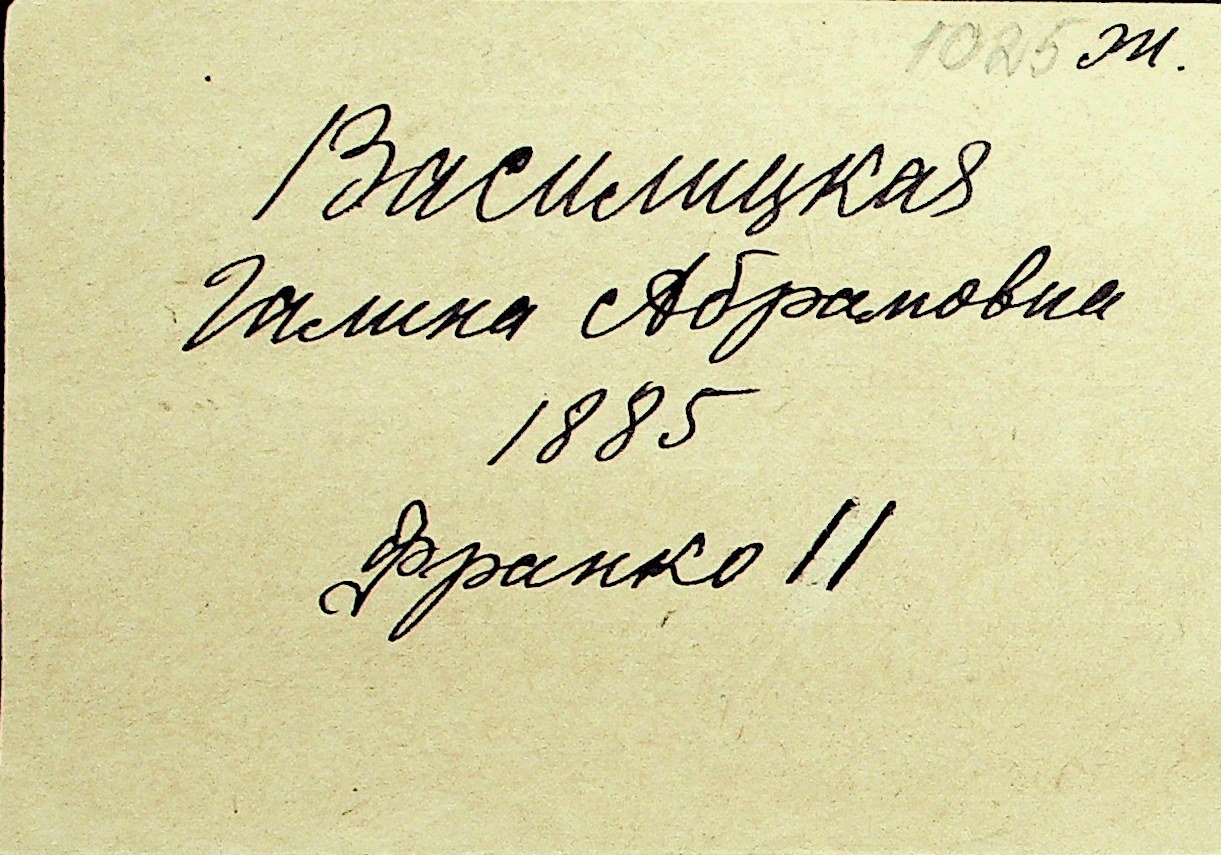 1025 ж.
Василицкая
Галина Абрамовна
1885
Франко 11